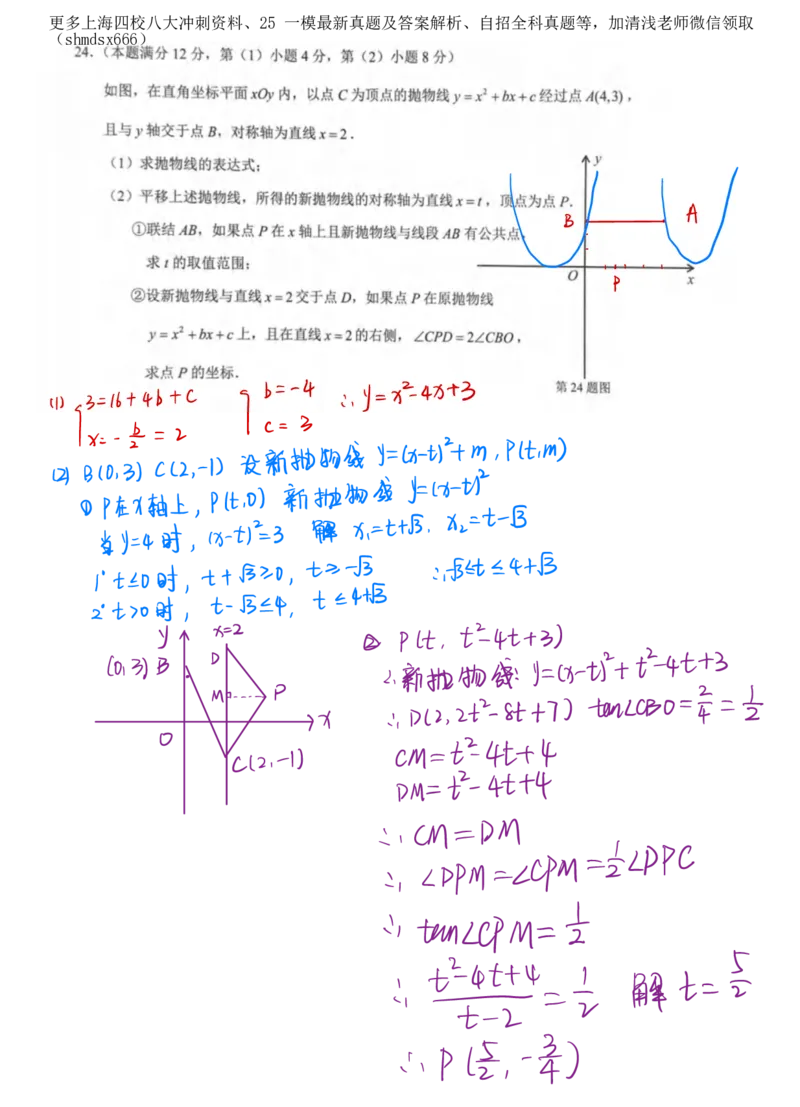 更多上海四校八大冲刺资料、25 一模最新真题及答案解析、自招全科真题等，加清浅老师微信领取
（shmdsx666）
24.（本题满分 12 分，第（1）小题 4 分，第（2）小题 8 分）
如图，在直角坐标平面 xOy 内，以点 C 为顶点的抛物线 y = x² + bx + c 经过点 A(4,3)，
且与 y 轴交于点 B，对称轴为直线 x = 2．
（1）求抛物线的表达式；
（2）平移上述抛物线，所得的新抛物线的对称轴为直线 x = t，顶点为点 P．
①联结 AB，如果点 P 在 x 轴上且新抛物线与线段 AB 有公共点，
求 t 的取值范围；
②设新抛物线与直线 x = 2 交于点 D，如果点 P 在原抛物线
y = x² + bx + c 上，且在直线 x = 2 的右侧，∠CPD = 2∠CBO，
求点 P 的坐标．
y
B
A
O
P
x
第 24 题图
(1) { 3=16+4b+c
x=-b/2=2
{ b=-4
c=3
∴ y=x²-4x+3
(2) B(0,3) C(2,-1) 设新抛物线 y=(x-t)²+m , P(t,m)
① P在x轴上, P(t,0) 新抛物线 y=(x-t)²
当y=4时, (x-t)²=3 解 x₁=t+√3. x₂=t-√3
1° t≤0时, t+√3≥0, t≥-√3 ∴-√3≤t≤4+√3
2° t>0时, t-√3≤4, t≤4+√3
y
x=2
(0,3) B
D
M
P
O
x
C(2,-1)
② P(t, t²-4t+3)
∴新抛物线: y=(x-t)²+t²-4t+3
∴D(2,2t²-8t+7) tan∠CBO=2/4=1/2
CM=t²-4t+4
DM=t²-4t+4
∴ CM=DM
∴ ∠DPM=∠CPM=1/2∠DPC
∴ tan∠CPM=1/2
∴ (t²-4t+4)/(t-2)=1/2 解 t=5/2
∴ P(5/2,-3/4)